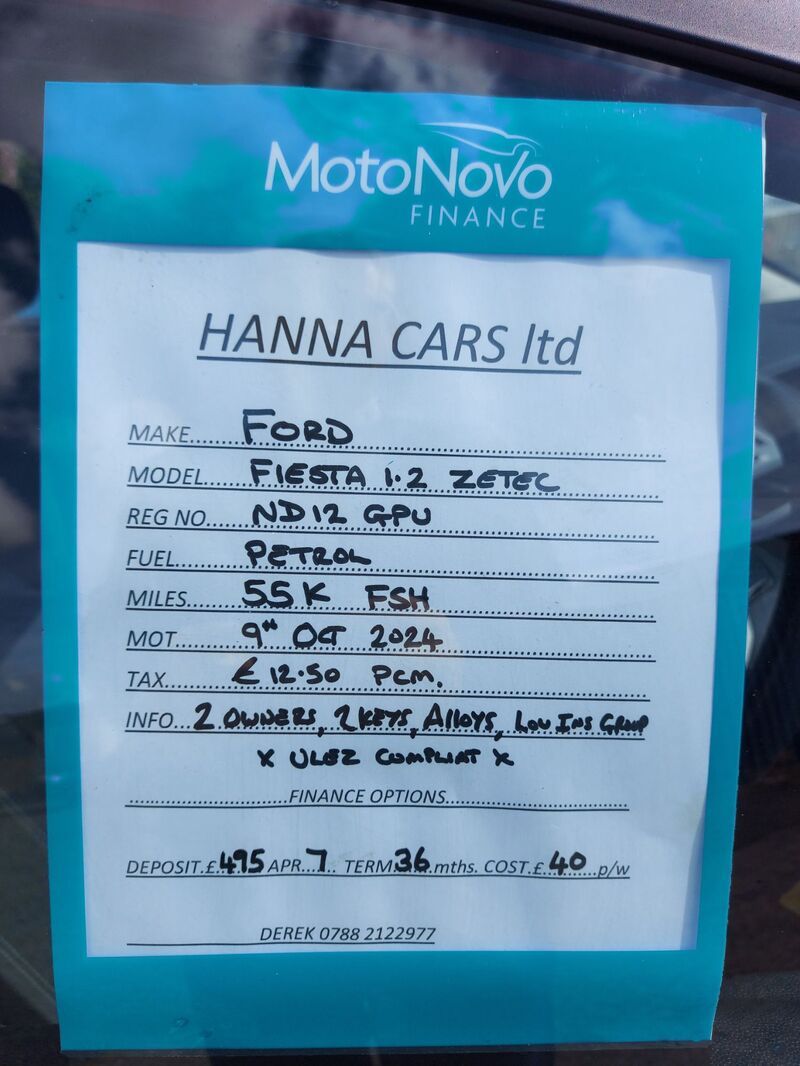 MotoNovo
FINANCE
HANNA CARS ltd
MAKE......FORD
MODEL....FIESTA 1.2 ZETEC
REG NO....ND12 GPU
FUEL.......PETROL
MILES......55K FSH
MOT.......9TH OCT 2024
TAX.......£12.50 PCM.
INFO...2 OWNERS, 2 KEYS, ALLOYS, LOW INS GROUP
X ULEZ COMPLIAT X
............FINANCE OPTIONS............
DEPOSIT.£495 APR..7.. TERM.36.mths. COST.£.40...p/w
DEREK 0788 2122977